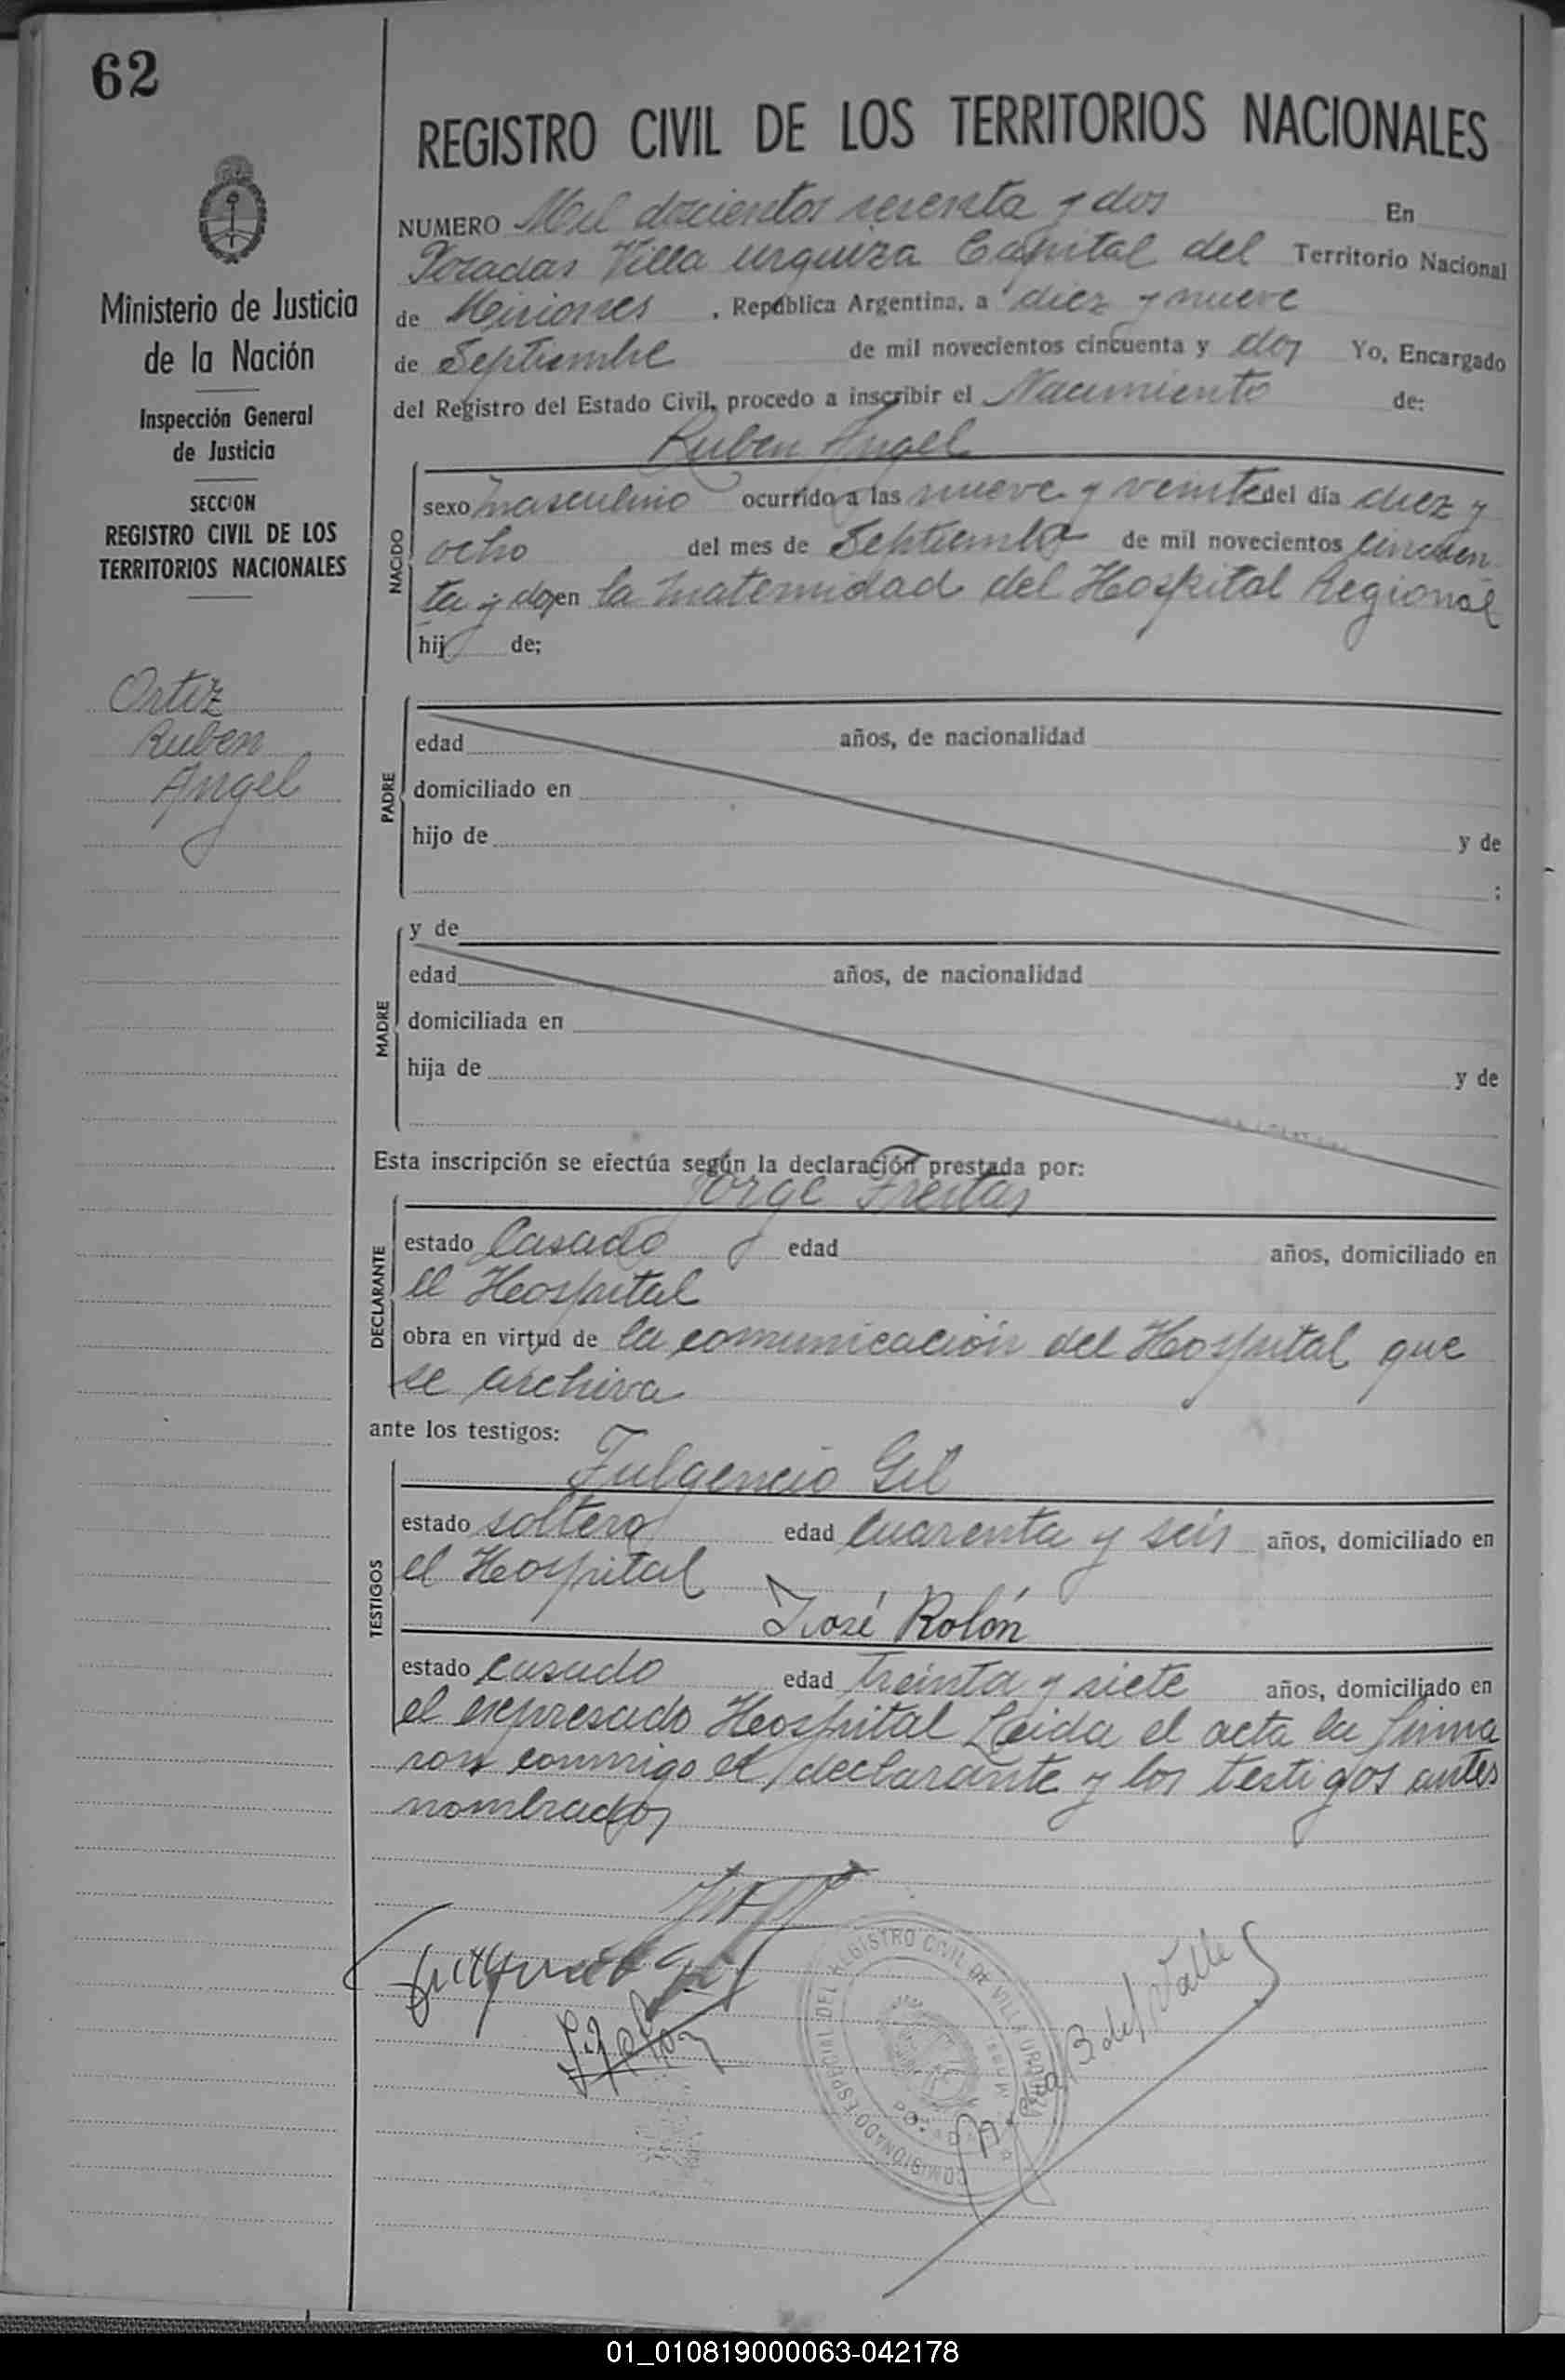 62
REGISTRO CIVIL DE LOS TERRITORIOS NACIONALES
Ministerio de Justicia
de la Nación
Inspección General
de Justicia
SECCION
REGISTRO CIVIL DE LOS
TERRITORIOS NACIONALES
Ortiz
Ruben
Angel
NUMERO Mil doscientos sesenta y dos En
Posadas Villa Urquiza Capital del Territorio Nacional
de Misiones , República Argentina, a diez y nueve
de Septiembre de mil novecientos cincuenta y dos Yo, Encargado
del Registro del Estado Civil, procedo a inscribir el Nacimiento de:
Ruben Angel
NACIDO
sexo masculino ocurrido a las nueve y veinte del día diez y
ocho del mes de Septiembre de mil novecientos cincuen
ta y dos en la maternidad del Hospital Regional
hijo de;
PADRE
edad años, de nacionalidad
domiciliado en
hijo de y de
;
MADRE
y de
edad años, de nacionalidad
domiciliada en
hija de y de
Esta inscripción se efectúa según la declaración prestada por:
Jorge Freitas
DECLARANTE
estado Casado edad años, domiciliado en
el Hospital
obra en virtud de la comunicación del Hospital que
se archiva
ante los testigos:
Fulgencio Gil
TESTIGOS
estado soltero edad cuarenta y seis años, domiciliado en
el Hospital
José Rolón
estado casado edad treinta y siete años, domiciliado en
el expresado Hospital Leida el acta la firma
ron conmigo el declarante y los testigos antes
nombrados
COMISIONADO ESPECIAL DEL REGISTRO CIVIL DE VILLA URQUIZA
POSADAS
B del Valle
01_010819000063-042178